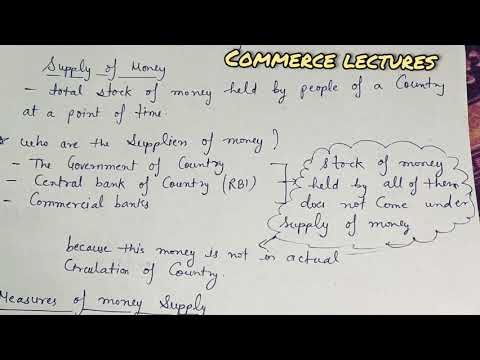 COMMERCE LECTURES
Supply of Money
- total stock of money held by people of a Country
at a point of time.
who are the Suppliers of money?
- The Government of Country
- Central bank of Country (RBI)
- Commercial banks
stock of money
held by all of them
does not Come under
supply of money
because this money is not in actual
Circulation of Country.
Measures of money Supply